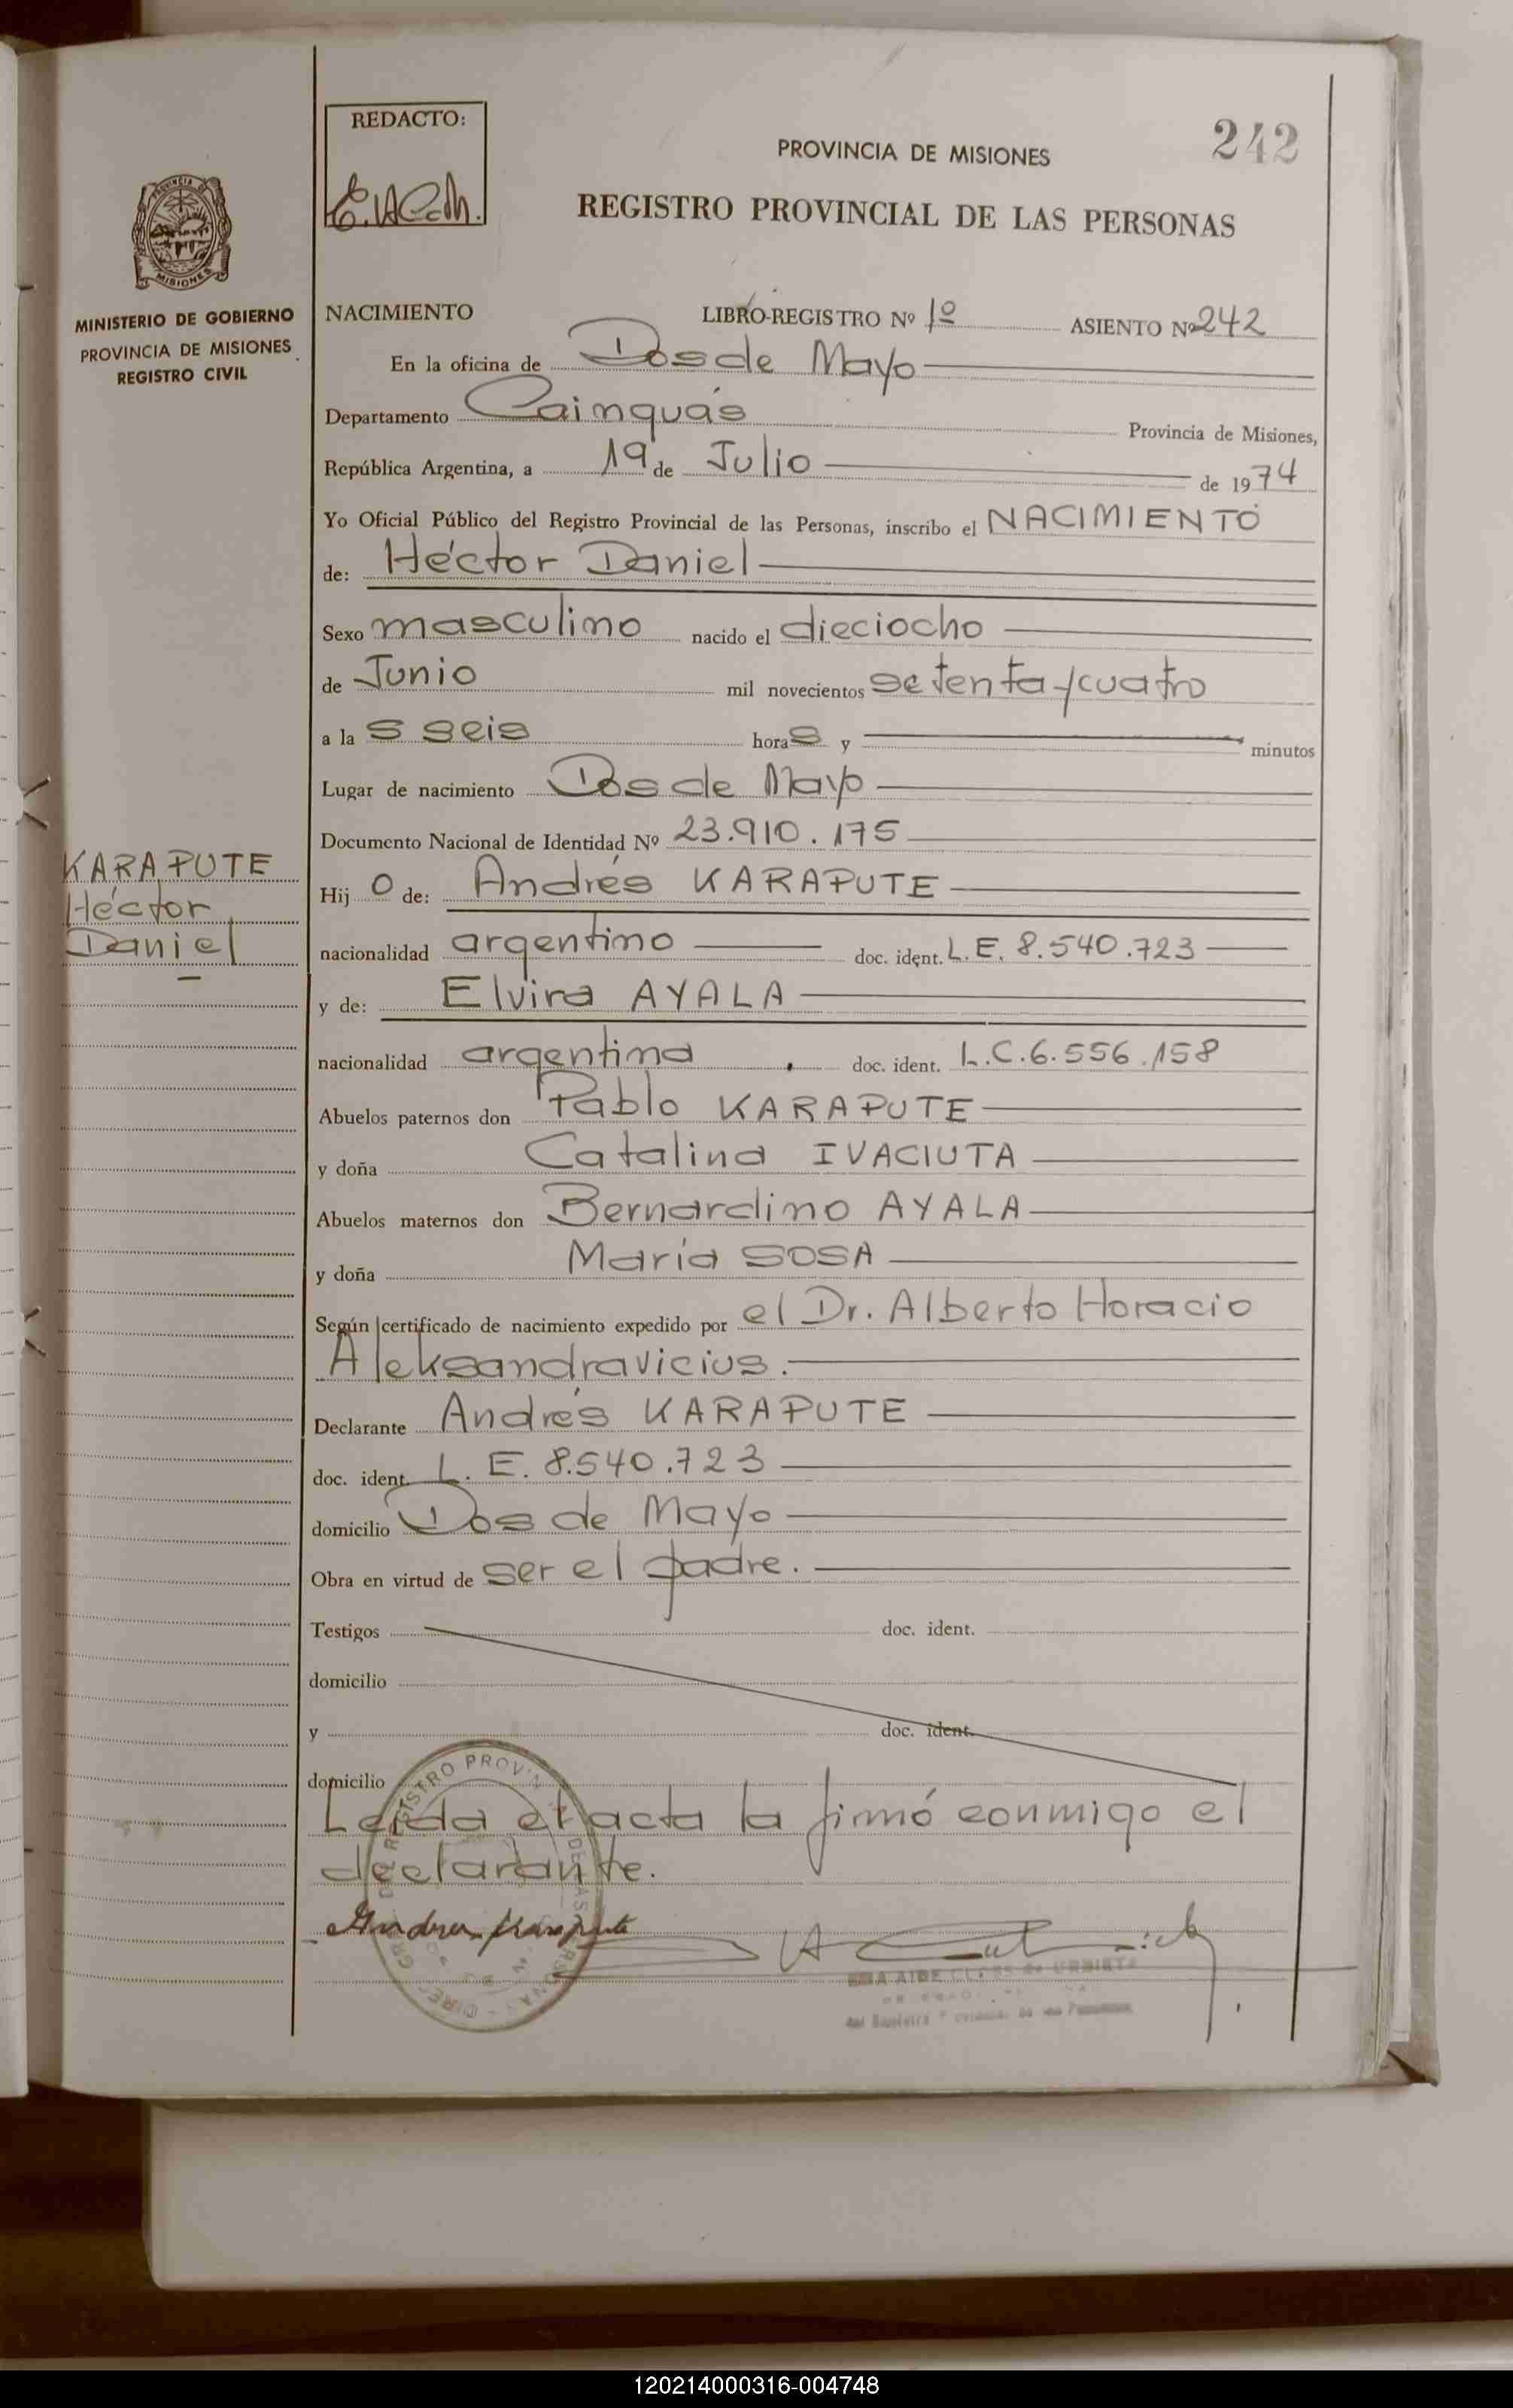 REDACTO:
242
PROVINCIA DE MISIONES
REGISTRO PROVINCIAL DE LAS PERSONAS
PROVINCIA DE
MISIONES
MINISTERIO DE GOBIERNO
PROVINCIA DE MISIONES
REGISTRO CIVIL
NACIMIENTO LIBRO-REGISTRO Nº 1º ASIENTO Nº 242
En la oficina de Dos de Mayo
Departamento Cainguás Provincia de Misiones,
República Argentina, a 19 de Julio de 1974
Yo Oficial Público del Registro Provincial de las Personas, inscribo el NACIMIENTO
de: Héctor Daniel
Sexo masculino nacido el dieciocho
de Junio mil novecientos setenta y cuatro
a la s seis horas y minutos
Lugar de nacimiento Dos de Mayo
Documento Nacional de Identidad Nº 23.910.175
KARAPUTE
Héctor
Daniel
Hij o de: Andrés KARAPUTE
nacionalidad argentino doc. ident. L.E. 8.540.723
y de: Elvira AYALA
nacionalidad argentina doc. ident. L.C. 6.556.158
Abuelos paternos don Pablo KARAPUTE
y doña Catalina IVACIUTA
Abuelos maternos don Bernardino AYALA
y doña María SOSA
Según certificado de nacimiento expedido por el Dr. Alberto Horacio
Aleksandravicius.
Declarante Andrés KARAPUTE
doc. ident. L. E. 8.540.723
domicilio Dos de Mayo
Obra en virtud de ser el padre.
Testigos doc. ident.
domicilio
y doc. ident.
domicilio
Leída el acta la firmó conmigo el
declarante.
Andres Karapute
120214000316-004748